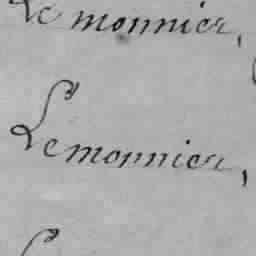 Le monnier,
Lemonnier,